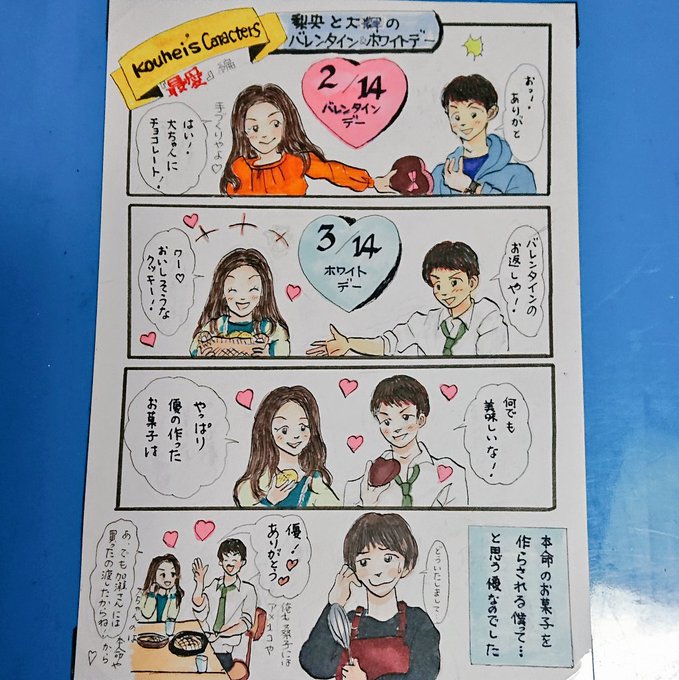 Kouhei's Caracters
『最愛』編
梨央と大輝の
バレンタイン&ホワイトデー
2/14
バレンタイン
デー
おっ!
ありがと
手づくりやよ♡
はい!
大ちゃんに
チョコレート!
3/14
ホワイト
デー
バレンタインの
お返しや!
ワー♡
おいしそうな
クッキー!
何でも
美味しいな!
やっぱり
優の作った
お菓子は
本命のお菓子を
作らされる僕って…
と思う優なのでした
どういたしまして…
優!
ありがとう
俺も梨子には
アメちゃんや
あ、でも加瀬さんには
買ったの渡したからね!